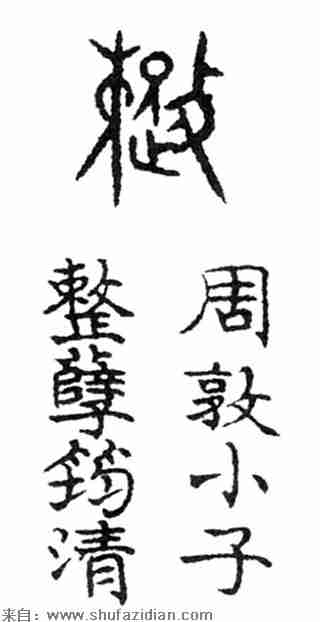 整
周敦小子
整孽筠清
来自：www.shufazidian.com